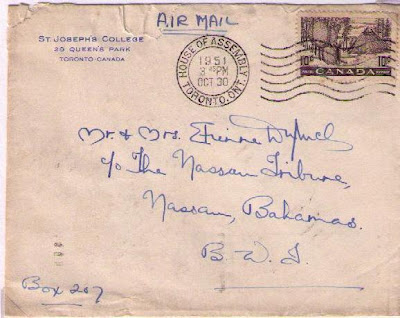 AIR MAIL
ST. JOSEPH'S COLLEGE
29 QUEEN'S PARK
TORONTO-CANADA
HOUSE OF ASSEMBLY
1951
PM
OCT 30
TORONTO, ONT.
10¢ 10¢
CANADA
Mr. & Mrs. Etienne Dupuch
c/o The Nassau Tribune,
Nassau, Bahamas.
B. W. I.
Box 207